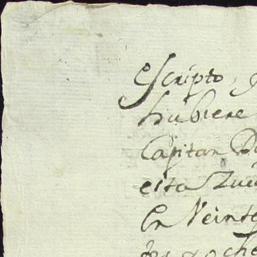 escripto,
hubiere
Capitan D
esta
En Veinte